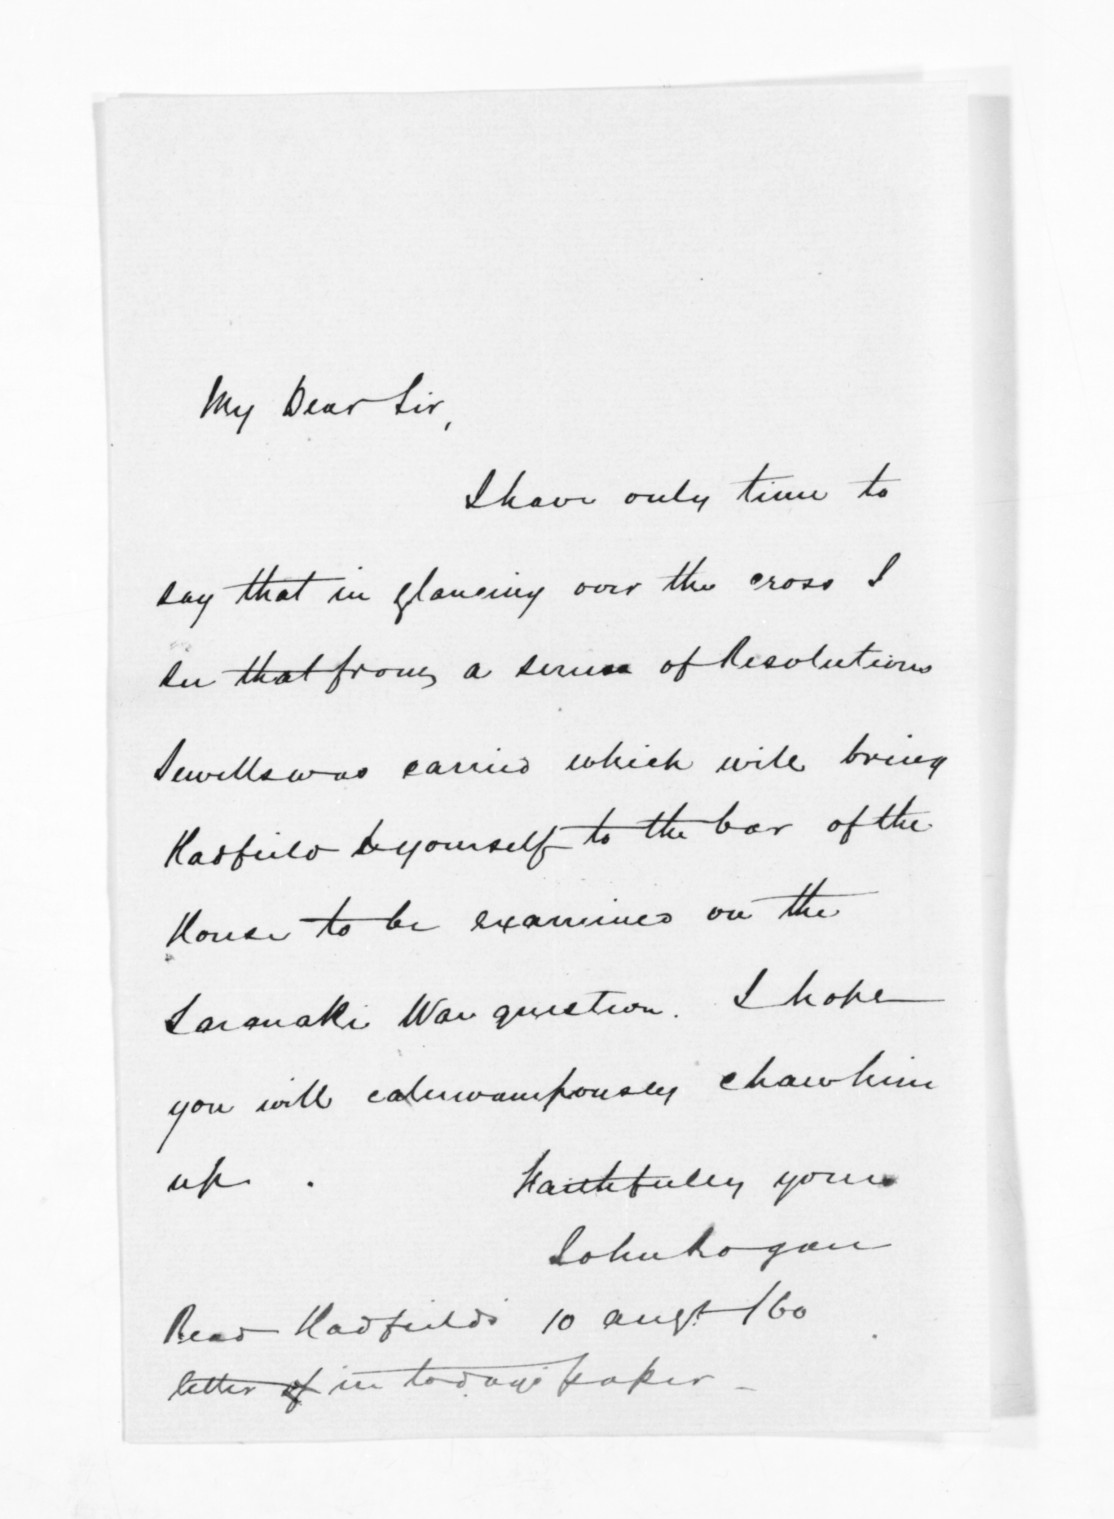 My Dear Sir,
I have only time to
say that in glancing over the cross I
see that from a series of Resolutions
Sewells was carried which will bring
Hadfield & yourself to the bar of the
House to be examined on the
Taranaki War question. I hope
you will chaw him
up.
Faithfully yours
John Rogan
Read Hadfield's 10 augt /60
letter of in todays paper -